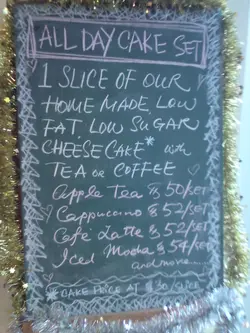 ALL DAY CAKE SET
1 SLICE OF OUR
HOME MADE, LOW
FAT, LOW SUGAR
CHEESE CAKE* with
TEA or COFFEE
Apple Tea $ 50/SET
Cappuccino $ 52/SET
Café Latte $ 52/SET
Iced Mocha $ 54/SET
and more....
*CAKE PRICE AT $30/SLICE